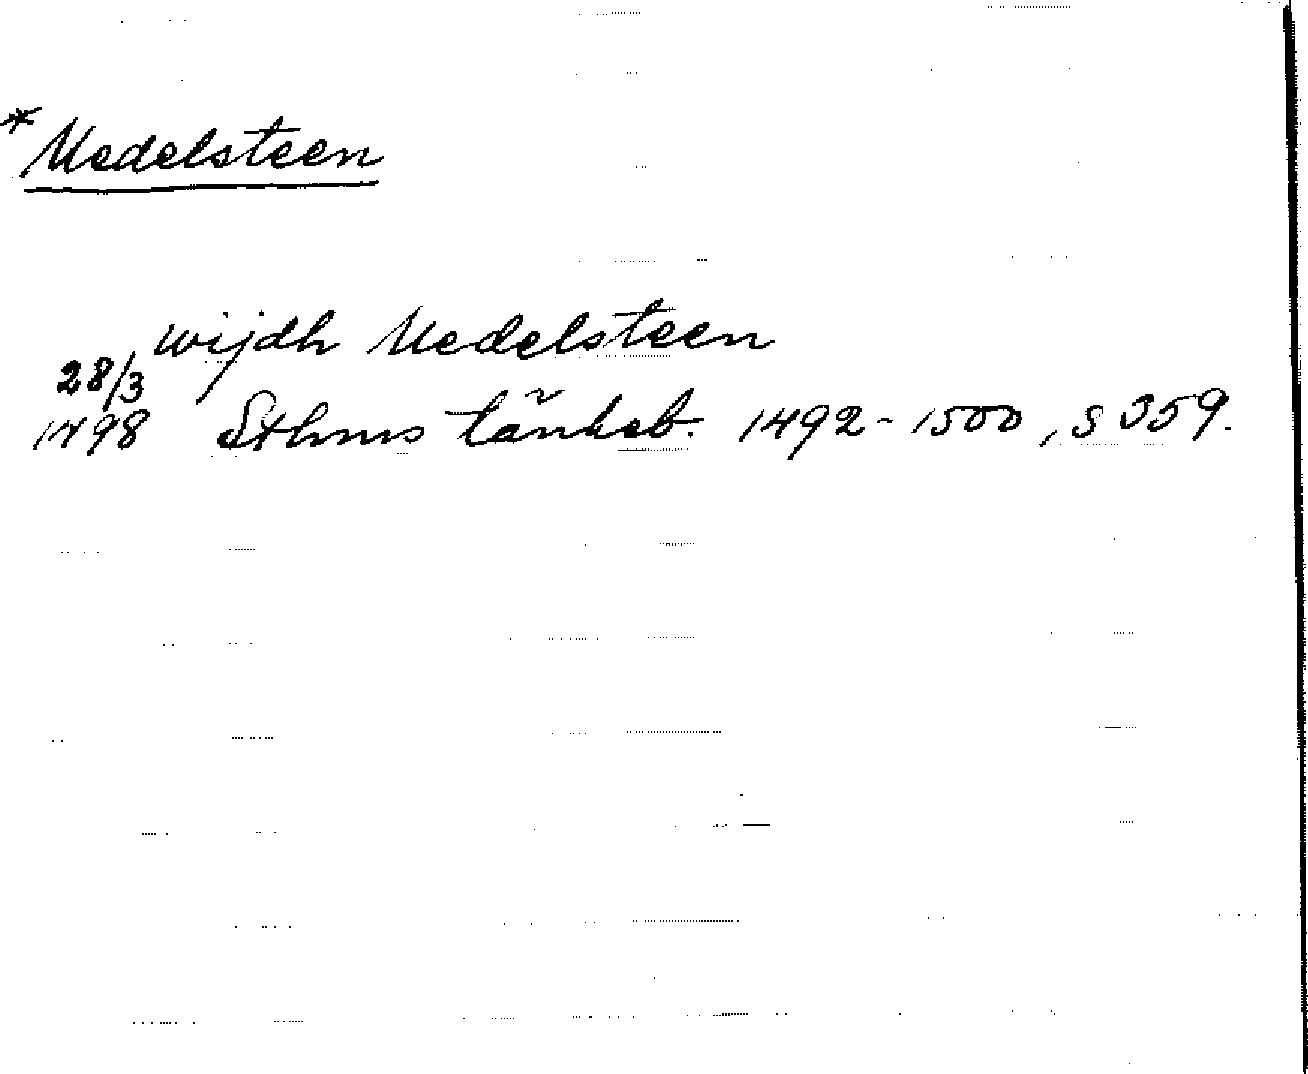 *Medelsteen
wijdh Medelsteen
28/3
1498 Sthms tänkeb. 1492-1500, s 359.